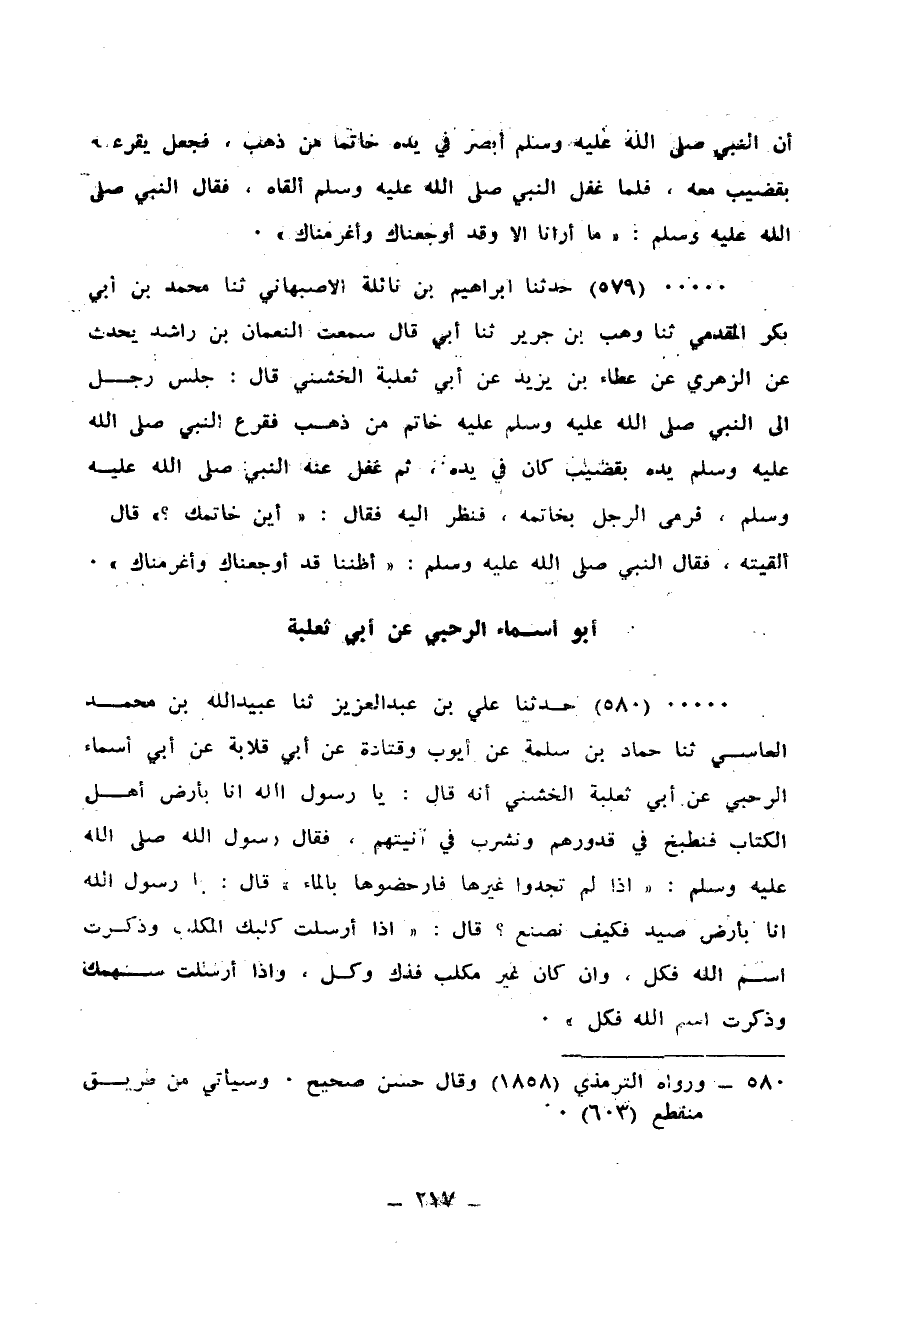 أن النبي صلى الله عليه وسلم أبصر في يده خاتما من ذهب ، فجعل يقرعه
بقضيب معه ، فلما غفل النبي صلى الله عليه وسلم ألقاه ، فقال النبي صلى
الله عليه وسلم : « ما أرانا الا وقد أوجعناك وأغرمناك » ٠
٠٠٠٠٠ (٥٧٩) حدثنا ابراهيم بن نائلة الاصبهاني ثنا محمد بن أبي
بكر المقدمي ثنا وهب بن جرير ثنا أبي قال سمعت النعمان بن راشد يحدث
عن الزهري عن عطاء بن يزيد عن أبي ثعلبة الخشني قال : جلس رجــل
الى النبي صلى الله عليه وسلم عليه خاتم من ذهــب فقرع النبي صلى الله
عليه وسلم يده بقضيب كان في يده ، ثم غفل عنه النبي صلى الله عليــه
وسلم ، فرمى الرجل بخاتمه ، فنظر اليه فقال : « أين خاتمك ؟» قال
ألقيته ، فقال النبي صلى الله عليه وسلم : « أظننا قد أوجعناك وأغرمناك » ٠
أبو أسـماء الرحبي عن أبي ثعلبة
٠٠٠٠٠ (٥٨٠) حــدثنا علي بن عبدالعزيز ثنا عبيدالله بن محمــد
العاسـي ثنا حماد بن سلمة عن أيوب وقتادة عن أبي قلابة عن أبي أسماء
الرحبي عن أبي ثعلبة الخشني أنه قال : يا رسول الله انا بأرض أهــل
الكتاب فنطبخ في قدورهم ونشرب في آنيتهم ، فقال رسول الله صلى الله
عليه وسلم : « اذا لم تجدوا غيرها فارحضوها بالماء » قال : ا رسول الله
انا بأرض صيد فكيف نصنع ؟ قال : « اذا أرسلت كلبك المكلب وذكـرت
اسـم الله فكل ، وان كان غير مكلب فذك وكــل ، واذا أرسلت ســهمك
وذكرت اسم الله فكل » ٠
٥٨٠ ــ ورواه الترمذي (١٨٥٨) وقال حسن صحيح ٠ وسيأتي من طريــق
منقطع (٦٠٣) ٠
ــ ٢١٧ ــ